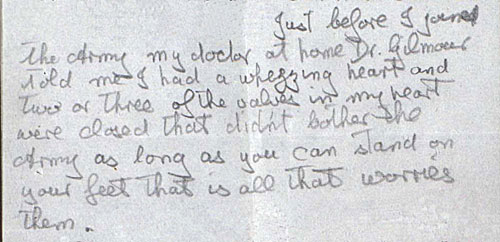 Just before I joined
the Army my doctor at home Dr. Gilmour
told me I had a whezzing heart and
two or three of the valves in my heart
were closed that didn't bother the
Army as long as you can stand on
your feet that is all that worries
them.